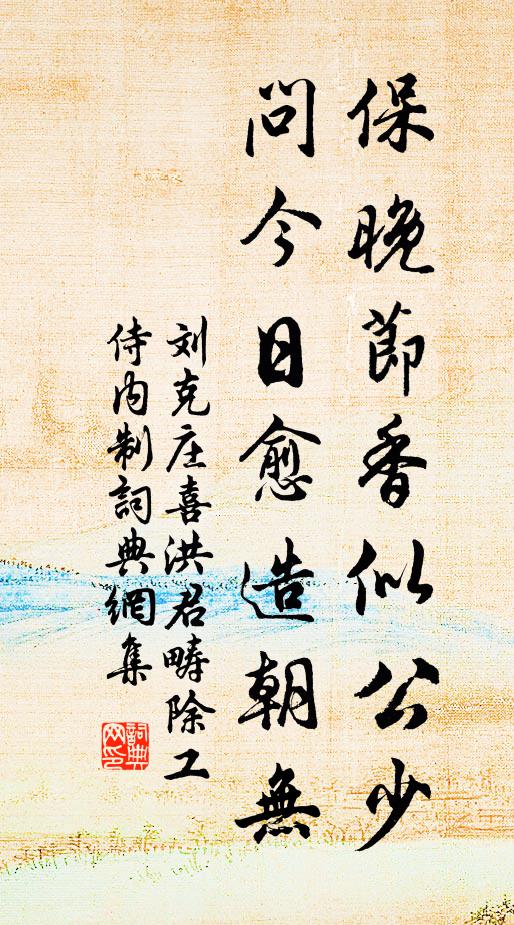 保晚節香似公少
問今日愈造朝無
刘克庄喜洪君畴除工
侍内制詞典網集
詞典网印